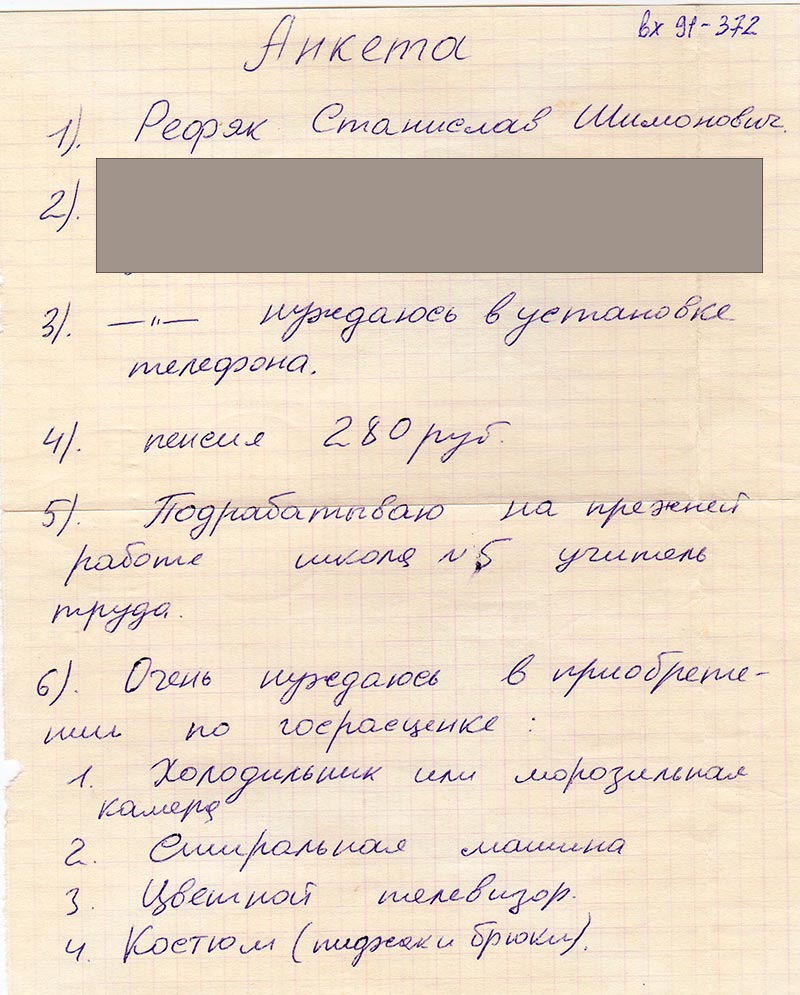 вх 91-372
Анкета
1). Рефяк Станислав Шимонович.
2).
3). —"— нуждаюсь в установке
телефона.
4). пенсия 280 руб.
5). Подрабатываю на прежней
работе школа №5 учитель
труда.
6). Очень нуждаюсь в приобрете-
нии по госрасценке :
1. Холодильник или морозильная
камера
2. Стиральная машина
3. Цветной телевизор.
4. Костюм (пиджак и брюки).